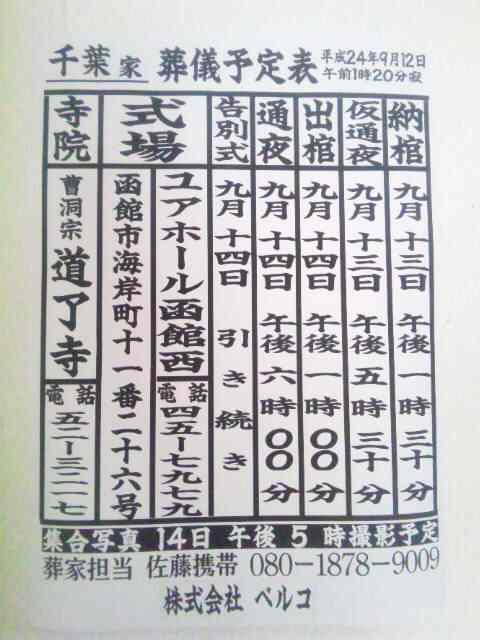 千葉家 葬儀予定表 平成24年9月12日
午前1時20分寂
納棺 九月十三日 午後一時三十分
仮通夜 九月十三日 午後五時三十分
出棺 九月十四日 午後一時〇〇分
通夜 九月十四日 午後六時〇〇分
告別式 九月十四日 引き続き
式場 ユアホール函館西 電話 四五ー七九七九
函館市海岸町十一番二十六号
寺院 曹洞宗 道了寺 電話 五二ー三二一七
集合写真 14日 午後 5 時撮影予定
葬家担当 佐藤携帯 080-1878-9009
株式会社 ベルコ